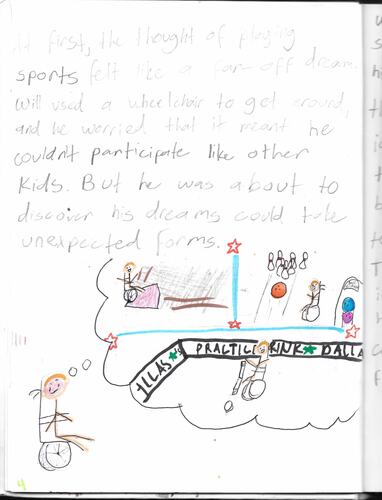 At first, the thought of playing
sports felt like a far-off dream.
Will used a wheelchair to get around,
and he worried that it meant he
couldn't participate like other
kids. But he was about to
discover his dreams could take
unexpected forms.
PRACTICE RINK ★ DALLA
LLAS ★
4